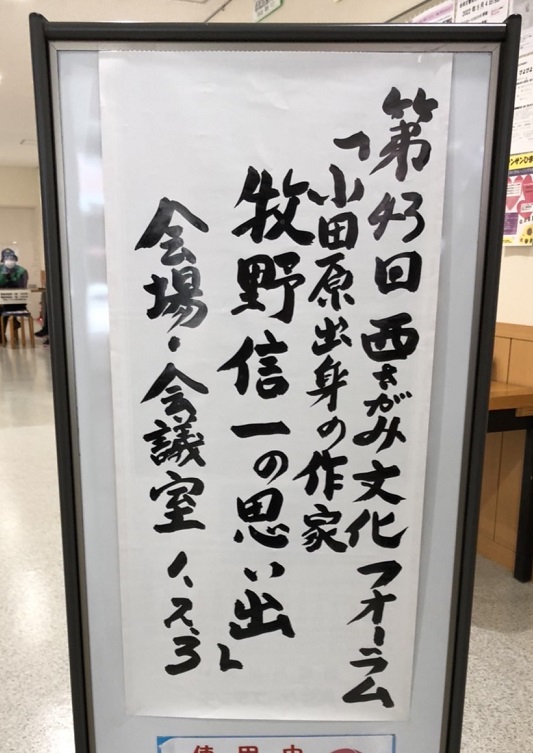 第43回西さがみ文化フォーラム
「小田原出身の作家
牧野信一の思い出」
会場・会議室1、2、3
使用中